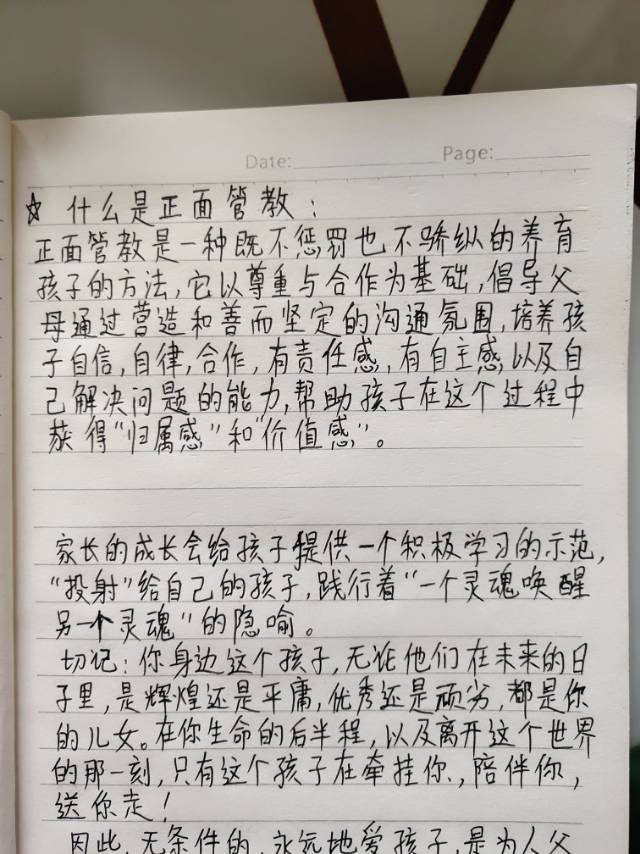 Date: Page:
☆ 什么是正面管教：
正面管教是一种既不惩罚也不骄纵的养育
孩子的方法,它以尊重与合作为基础,倡导父
母通过营造和善而坚定的沟通氛围,培养孩
子自信,自律,合作,有责任感,有自主感,以及自
己解决问题的能力,帮助孩子在这个过程中
获得“归属感”和“价值感”。
家长的成长会给孩子提供一个积极学习的示范,
“投射”给自己的孩子,践行着“一个灵魂唤醒
另一个灵魂”的隐喻。
切记:你身边这个孩子,无论他们在未来的日
子里,是辉煌还是平庸,优秀还是顽劣,都是你
的儿女。在你生命的后半程,以及离开这个世界
的那一刻,只有这个孩子在牵挂你,陪伴你,
送你走!
因此,无条件的,永远地爱孩子,是为人父